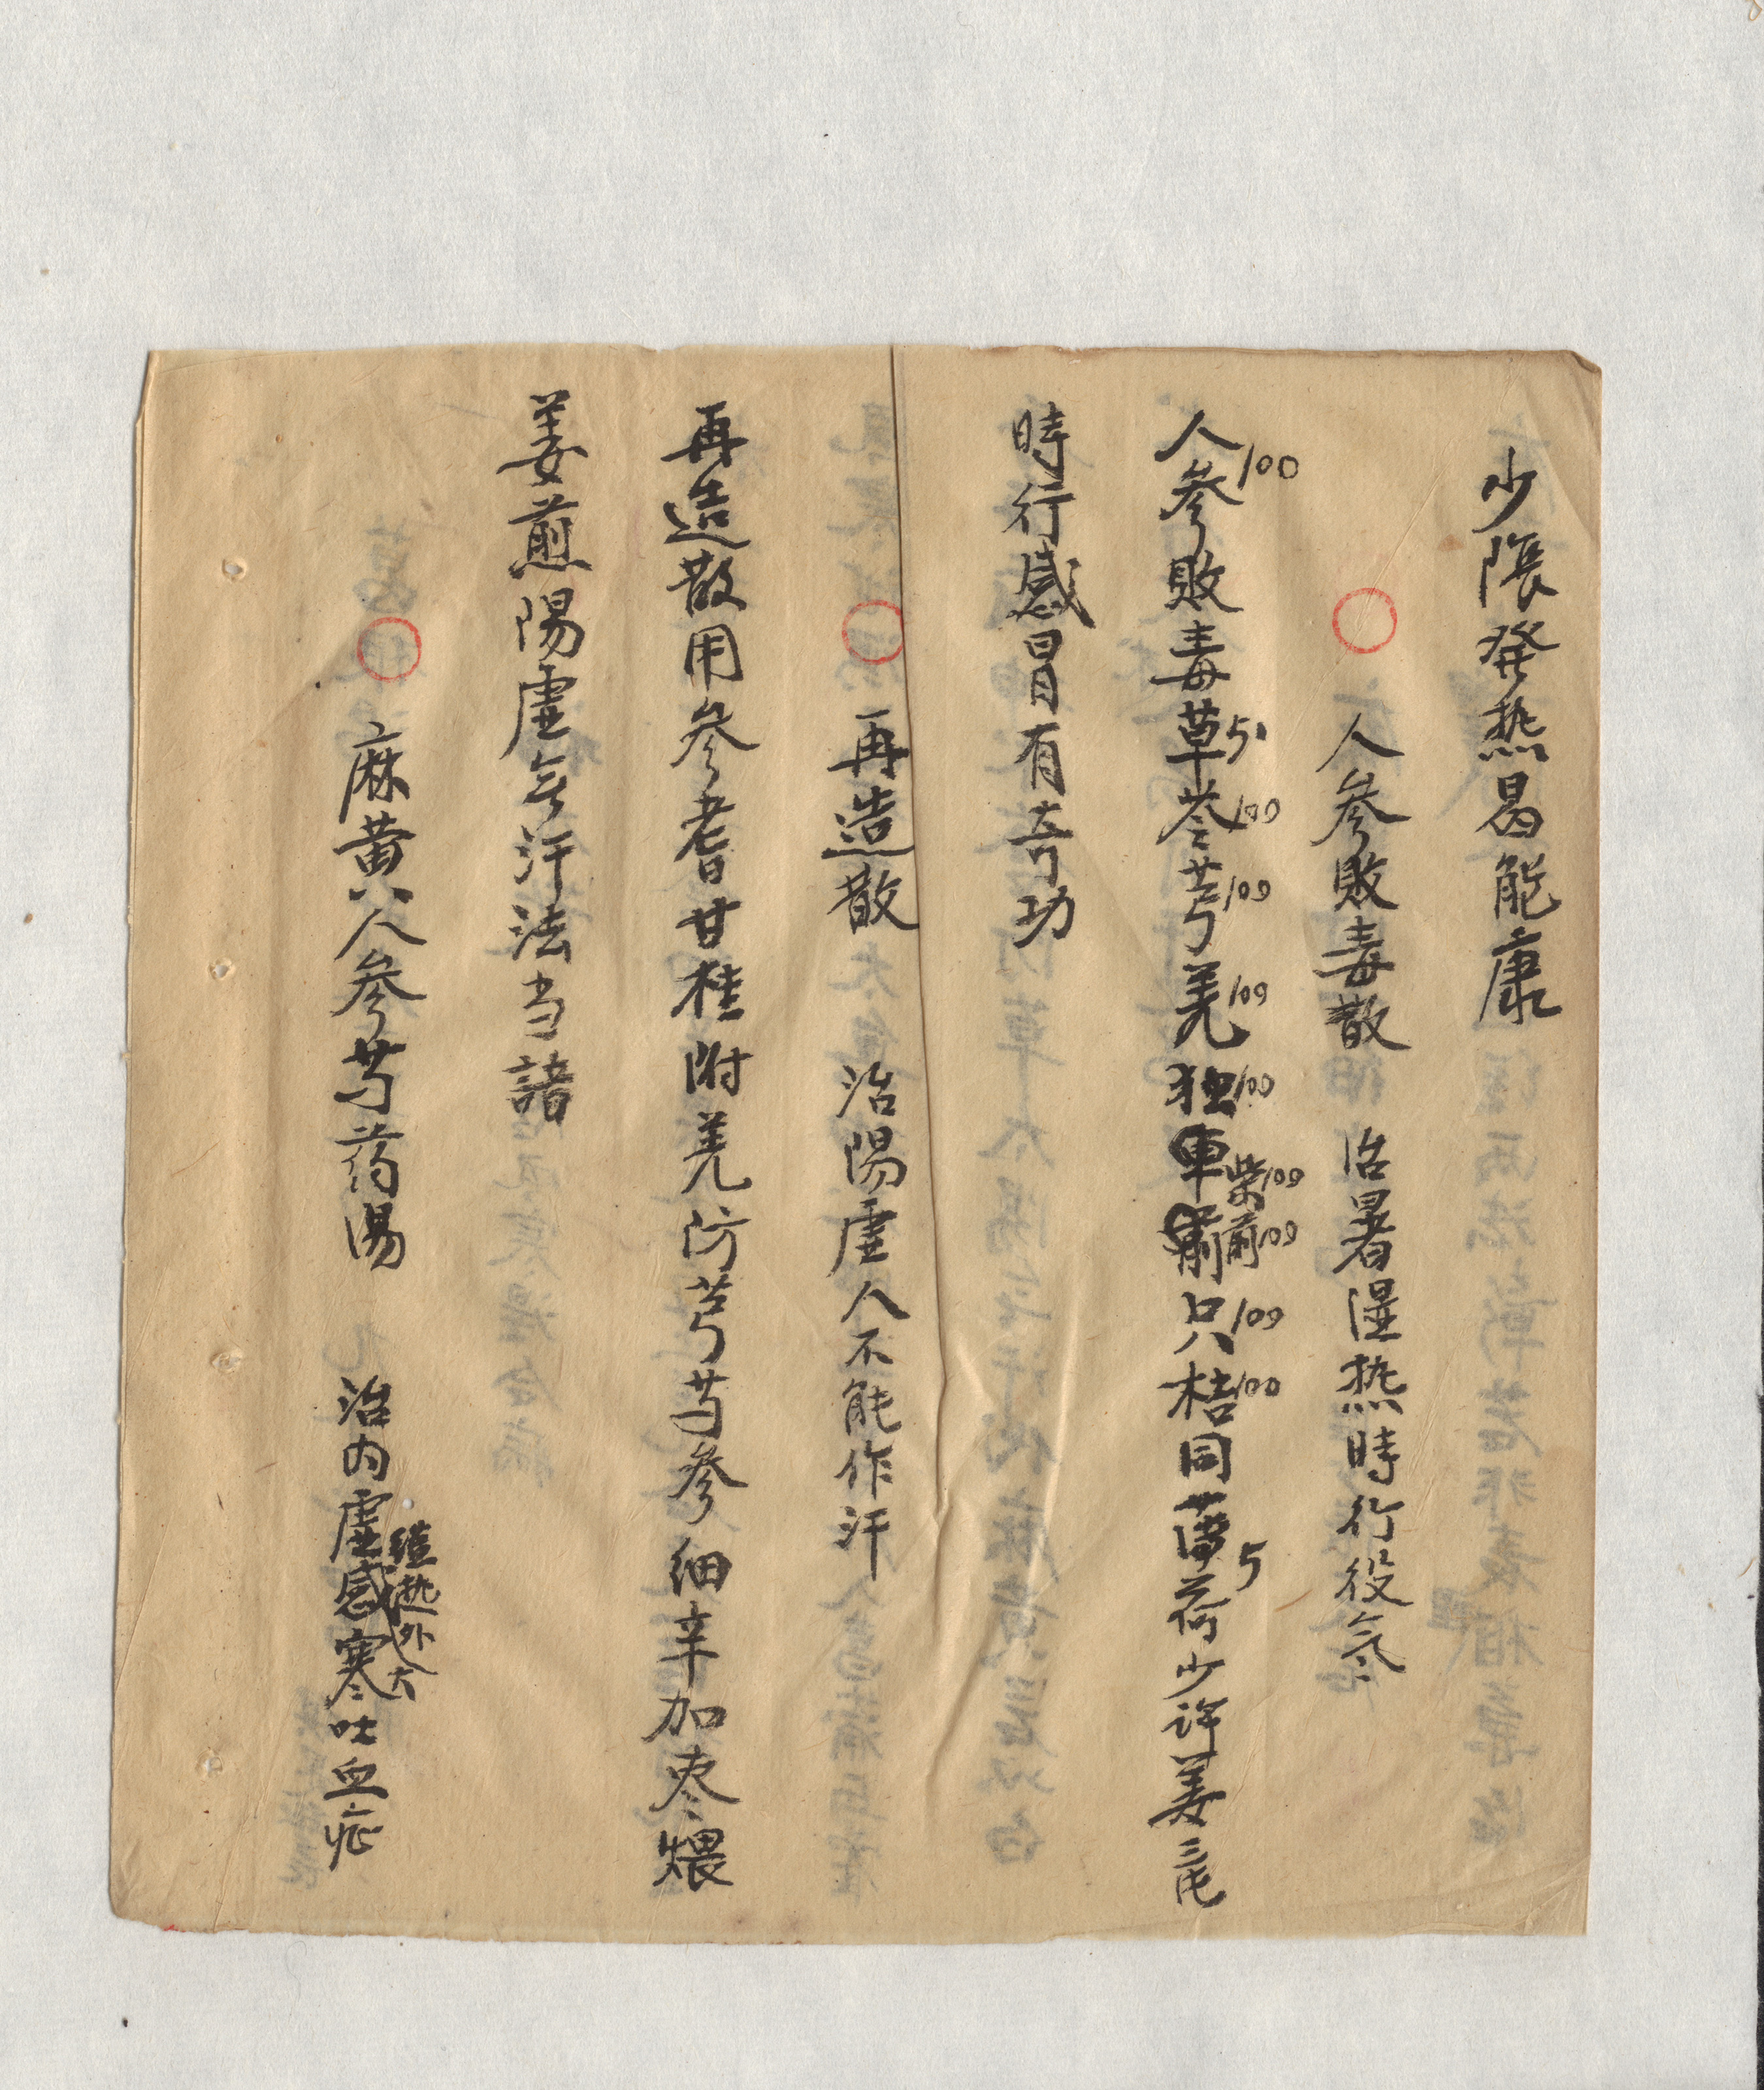 少隂発热曷能康
○ 人參敗毒散 治暑湿热時行役氣
人參100敗毒草5苓100芎100羌100独100柴100前100只100桔100同薄荷5少許姜三屯
時行感冒有奇功
○ 再造散 治陽虛人不能作汗
再造散用參耆甘桂附羌防芎芍參細辛加枣煨
姜煎陽虛無汗法当諳
○ 麻黄人參芍药湯 治内虛感寒吐血症
热外